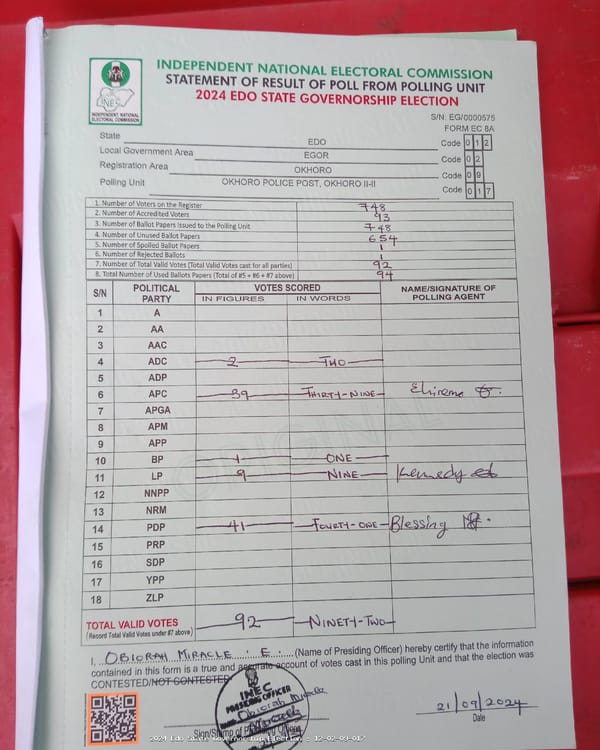 INDEPENDENT NATIONAL ELECTORAL COMMISSION
STATEMENT OF RESULT OF POLL FROM POLLING UNIT
2024 EDO STATE GOVERNORSHIP ELECTION
INEC
INDEPENDENT NATIONAL ELECTORAL COMMISSION
S/N: EG/0000575
FORM EC 8A
State EDO Code 0 1 2
Local Government Area EGOR Code 0 2
Registration Area OKHORO Code 0 9
Polling Unit OKHORO POLICE POST, OKHORO II-II Code 0 1 7
1. Number of Voters on the Register 748
2. Number of Accredited Voters 93
3. Number of Ballot Papers Issued to the Polling Unit 748
4. Number of Unused Ballot Papers 654
5. Number of Spoiled Ballot Papers 1
6. Number of Rejected Ballots 1
7. Number of Total Valid Votes (Total Valid Votes cast for all parties) 92
8. Total Number of Used Ballots Papers (Total of #5 + #6 + #7 above) 94
S/N POLITICAL PARTY VOTES SCORED NAME/SIGNATURE OF POLLING AGENT
IN FIGURES IN WORDS
1 A
2 AA
3 AAC
4 ADC 2 TWO
5 ADP
6 APC 39 THIRTY-NINE Ehireme
7 APGA
8 APM
9 APP
10 BP 1 ONE
11 LP 9 NINE Kennedy
12 NNPP
13 NRM
14 PDP 41 FOURTY-ONE Blessing
15 PRP
16 SDP
17 YPP
18 ZLP
TOTAL VALID VOTES 92 NINETY-TWO
(Record Total Valid Votes under #7 above)
I, OBIORAH MIRACLE . E . (Name of Presiding Officer) hereby certify that the information
contained in this form is a true and accurate account of votes cast in this polling Unit and that the election was
CONTESTED/NOT CONTESTED
INEC
PRESIDING OFFICER
Obiorah Miracle
21/09/2024
Sign/Stamp of Presiding Officer
Date